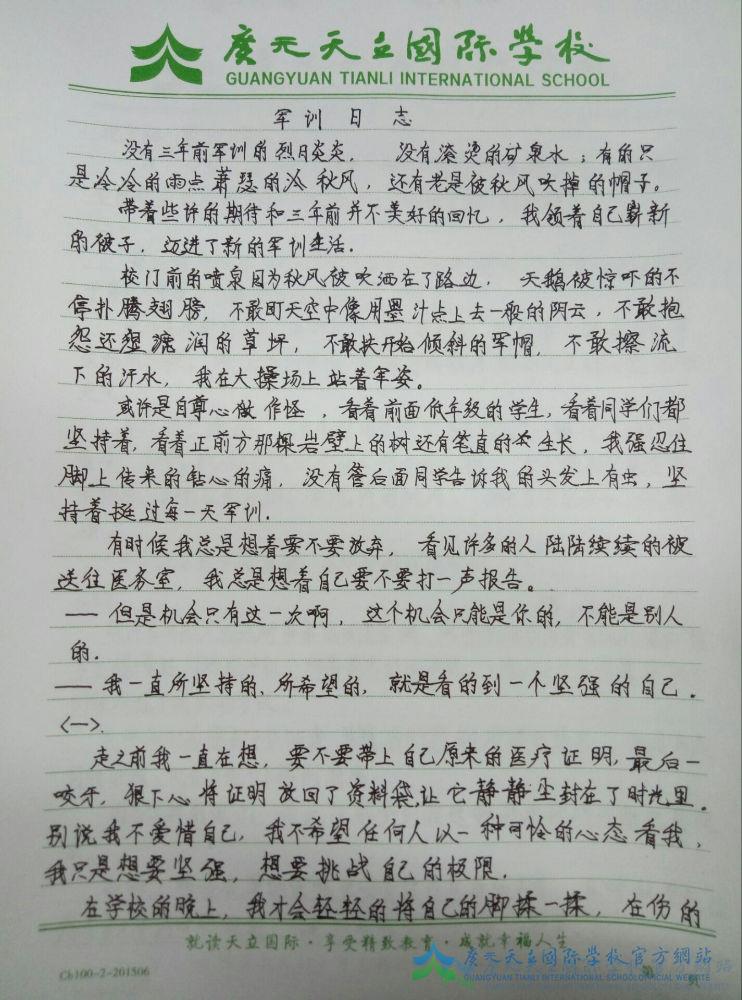 廣元天立國际学校
GUANGYUAN TIANLI INTERNATIONAL SCHOOL
军训日志
没有三年前军训的烈日炎炎，没有滚烫的矿泉水；有的只
是冷冷的雨点萧瑟的冷秋风，还有老是被秋风吹掉的帽子。
带着些许的期待和三年前并不美好的回忆，我领着自己崭新
的被子，迈进了新的军训生活.
校门前的喷泉因为秋风被吹洒在了路边，天鹅被惊吓的不
停扑腾翅膀，不敢盯天空中像用墨汁点上去一般的阴云，不敢抱
怨还湿润的草坪，不敢扶开始倾斜的军帽，不敢擦流
下的汗水，我在大操场上站着军姿。
或许是自尊心做作怪，看着前面低年级的学生，看着同学们都
坚持着，看着正前方那棵岩壁上的树还有笔直的生长，我强忍住
脚上传来的钻心的痛，没有管后面同学告诉我的头发上有虫，坚
持着挺过每一天军训.
有时候我总是想着要不要放弃，看见许多的人陆陆续续的被
送往医务室，我总是想着自己要不要打一声报告。
—— 但是机会只有这一次啊，这个机会只能是你的，不能是别人
的.
—— 我一直所坚持的、所希望的，就是看的到一个坚强的自己.
<一>.
走之前我一直在想，要不要带上自己原来的医疗证明，最后一
咬牙，狠下心将证明放回了资料袋，让它静静尘封在了时光里.
别说我不爱惜自己，我不希望任何人以一种可怜的心态看我，
我只是想要坚强，想要挑战自己的极限.
在学校的晚上，我才会轻轻的将自己的脚揉一揉，在伤的
就读天立国际·享受精致教育·成就幸福人生
Cb100-2-201506
第 页
廣元天立國际学校官方網站
GUANGYUAN TIANLI INTERNATIONAL SCHOOLOFFICIAL WEBSITE